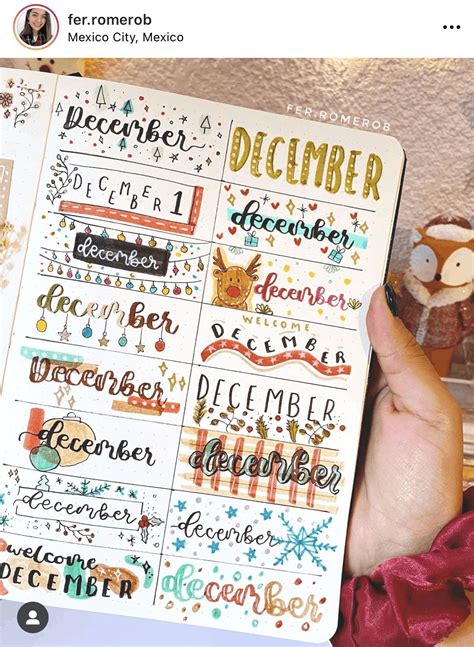 fer.romerob
Mexico City, Mexico
FER.ROMEROB
December
DECEMBER
DECEMBER 1
december
december
december
december
WELCOME
DECEMBER
December
DECEMBER
december
december
december
december
welcome
DECEMBER
december